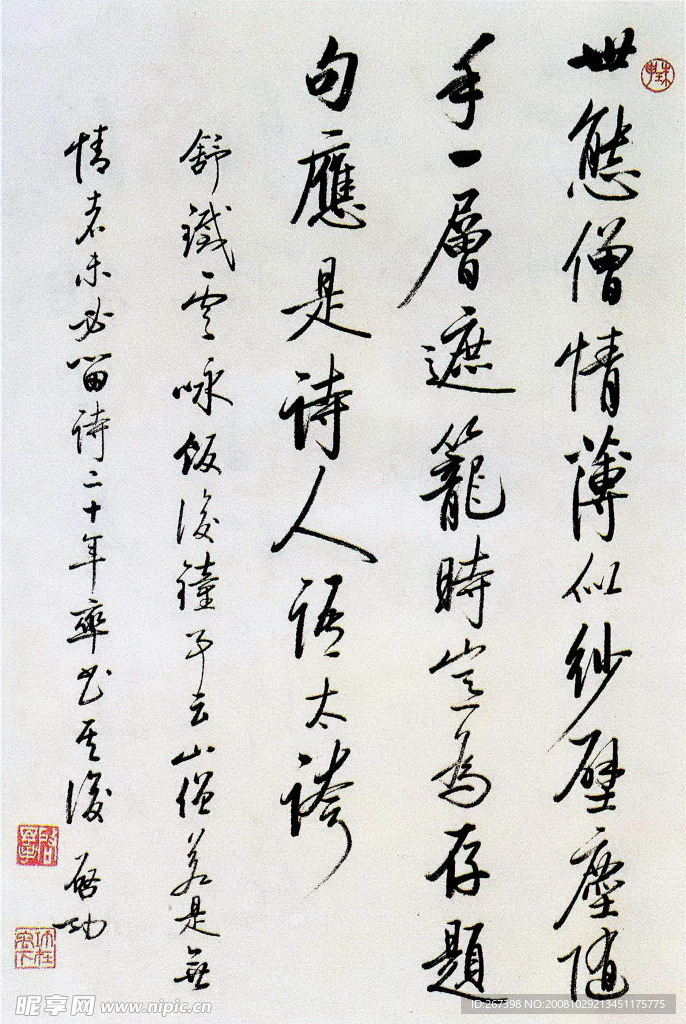 世態僧情薄似紗壁塵隨
手一層遮籠時豈為存題
句應是詩人語太誇
舒鐵雲咏飯後鐘子云山僧若是無
情者未必留詩二十年率书其後
啓功
昵享网 www.nipic.cn
ID:267398 NO:20081029213451175775